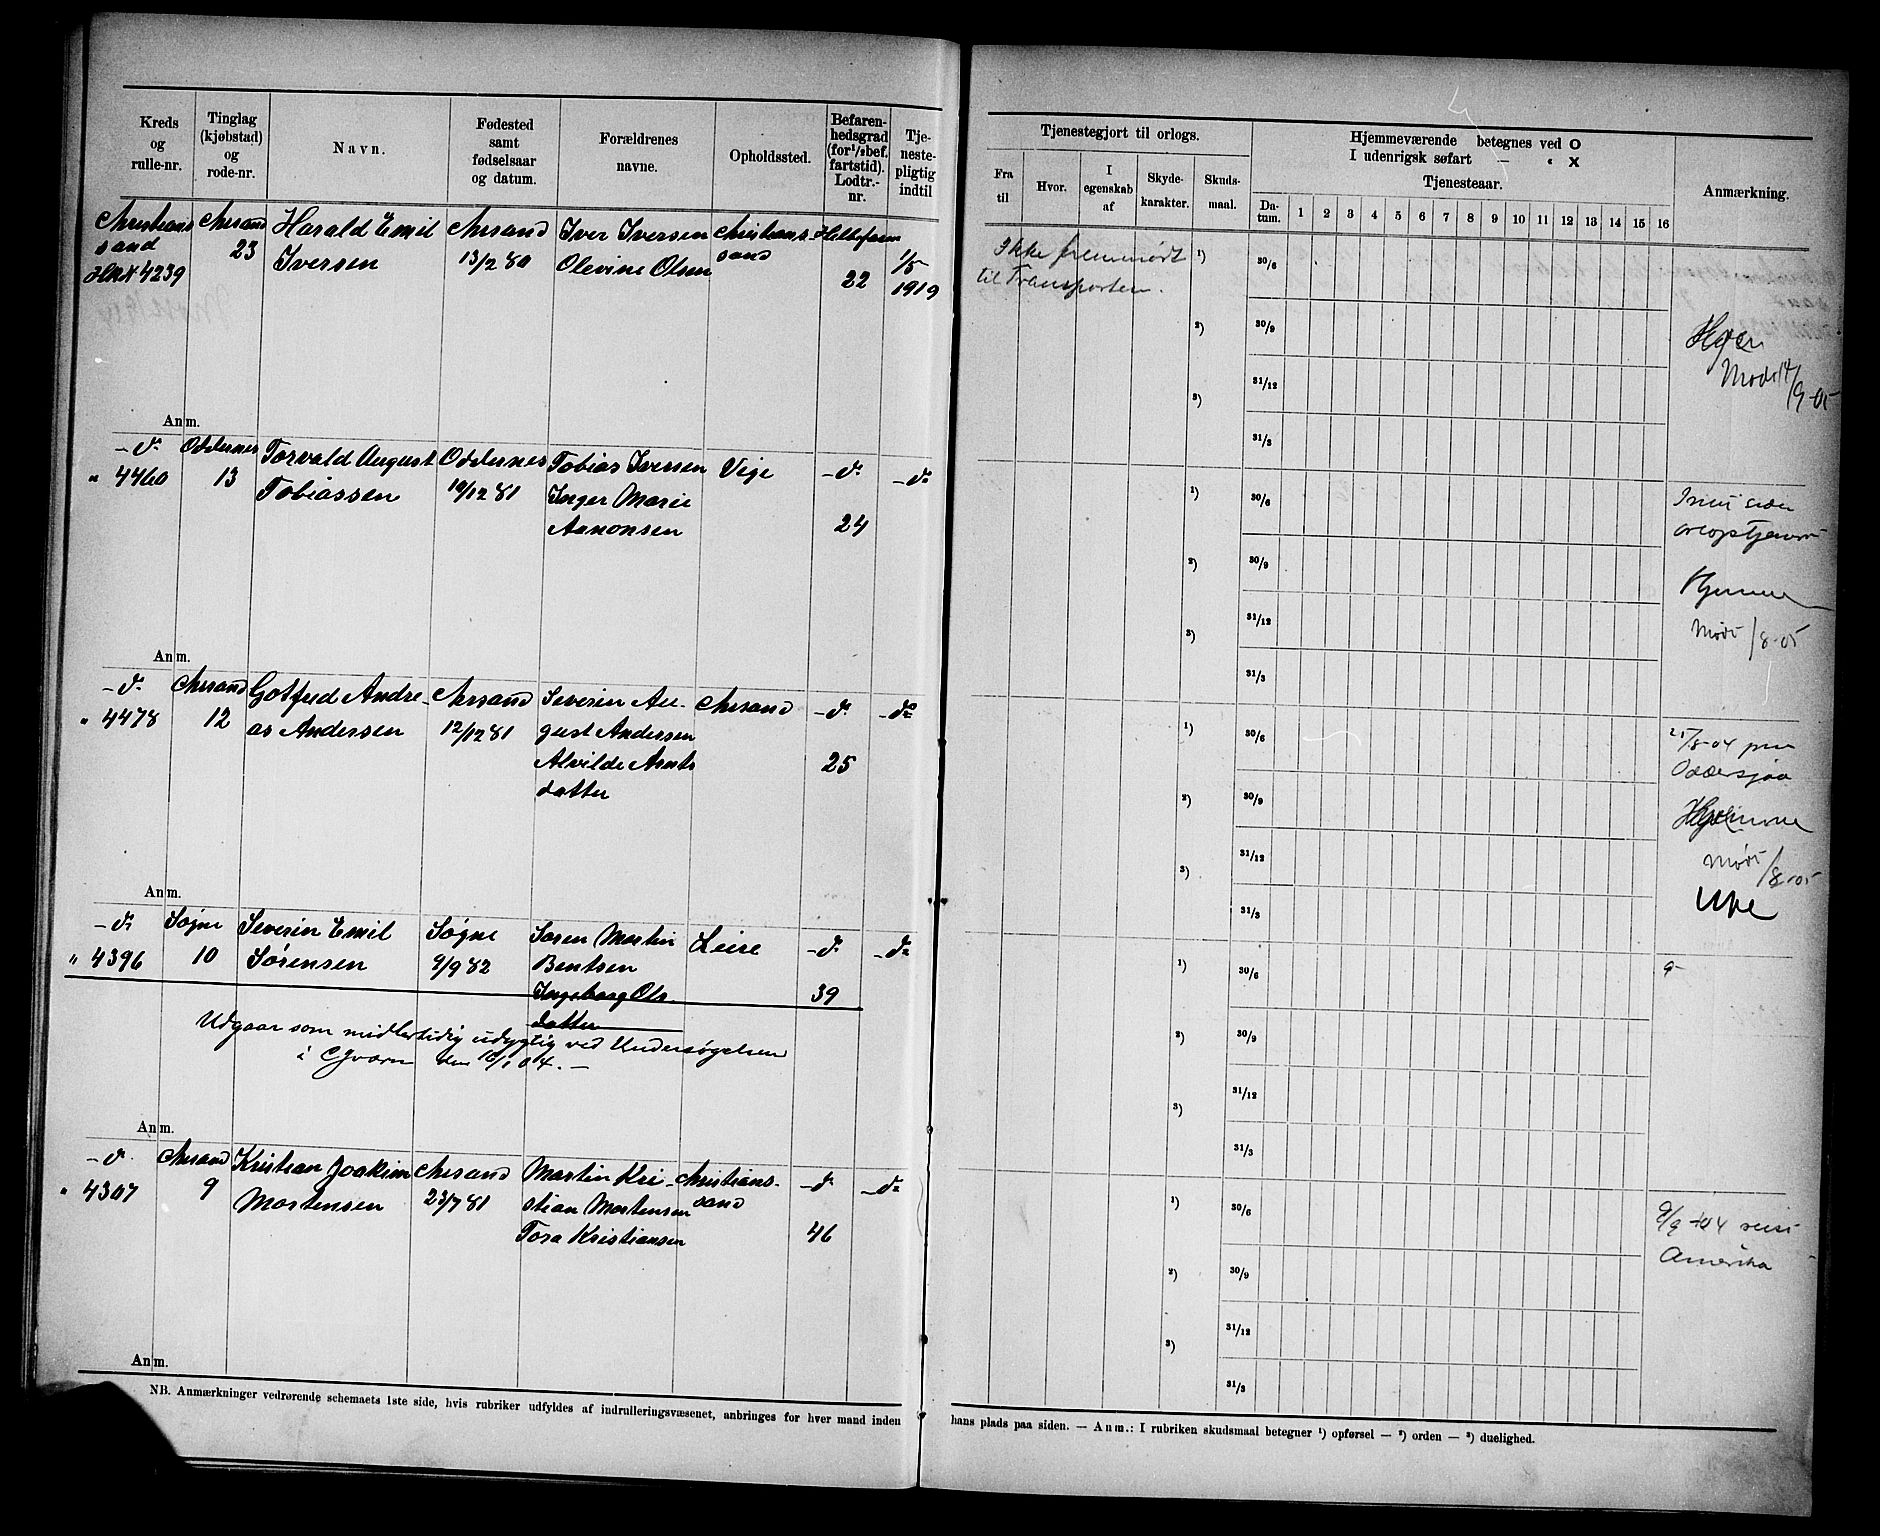 Kreds
og
rulle-nr.
Tinglag
(kjøbstad)
og
rode-nr.
Navn.
Fødested
samt
fødselsaar
og datum.
Forældrenes
navne.
Opholdssted.
Befaren-
hedsgrad
(for ½bef.
fartstid).
Lodtr.-
nr.
Tje-
neste-
pligtig
indtil
Christians
sand
4239
Chrsand
23
Harald Emil
Iversen
Chrsand
13/2 80
Iver Iversen
Olevine Olsen
Christians-
sand
Helbefaren
22
1/5
1919
Anm.
-d-
" 4460
Oddernes
13
Torvald August
Tobiassen
Oddernes
10/12 81
Tobias Iversen
Inger Marie
Aanonsen
Vige
-d-
24
-d-
Anm.
-d-
" 4478
Chrsand
12
Gotfred Andre-
as Andersen
Chrsand
12/12 81
Severin Au-
gust Andersen
Alvilde Arnts
datter
Chrsand
-d-
25
-d-
Anm.
-d-
" 4396
Søgne
10
Severin Emil
Sørensen
Søgne
9/9 82
Søren Martin
Bentsen
Ingeborg Ols
datter
Leire
-d-
39
-d-
Udgaar som midlertidig udygtig ved Undersøgelsen
i den 16/1 04. -
Anm.
-d-
" 4307
Chrsand
9
Kristian Joakim
Mortensen
Chrsand
23/7 81
Martin Kri-
stian Mortensen
Tora Kristiansen
Christians-
sand
-d-
46
-d-
Anm.
NB. Anmærkninger vedrørende schemaets 1ste side, hvis rubriker udfyldes af indrulleringsvæsenet, anbringes for hver mand inden
Tjenestegjort til orlogs.
Fra
til
Hvor.
I
egenskab
af
Skyde-
karakter.
Skuds-
maal.
Hjemmeværende betegnes ved O
I udenrigsk søfart — " X
Tjenesteaar.
Da-
tum. 1 2 3 4 5 6 7 8 9 10 11 12 13 14 15 16
Anmærkning.
Ikke fremmødt
til Transporten.
1)
2)
3)
30/6
30/9
31/12
31/3
Mødt 14/9-05
1)
2)
3)
30/6
30/9
31/12
31/3
Hjemme
Mødt /8-05
1)
2)
3)
30/6
30/9
31/12
31/3
25/8-04 paa
Oddersjaa
Mødt /8-05
1)
2)
3)
30/6
30/9
31/12
31/3
1)
2)
3)
30/6
30/9
31/12
31/3
9/9-04 reist
Amerika
hans plads paa siden. — Anm.: I rubriken skudsmaal betegner ¹) opførsel — ²) orden — ³) duelighed.